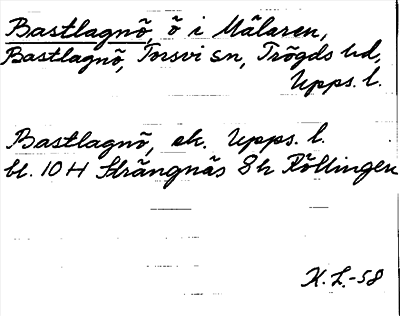 Bastlagnö, ö i Mälaren,
Bastlagnö, Torsvi sn, Trögds hd,
Upps. l.
Bastlagnö, ek. Upps. l.
bl. 10 H Strängnäs 8h Röllingen
K. L.-58